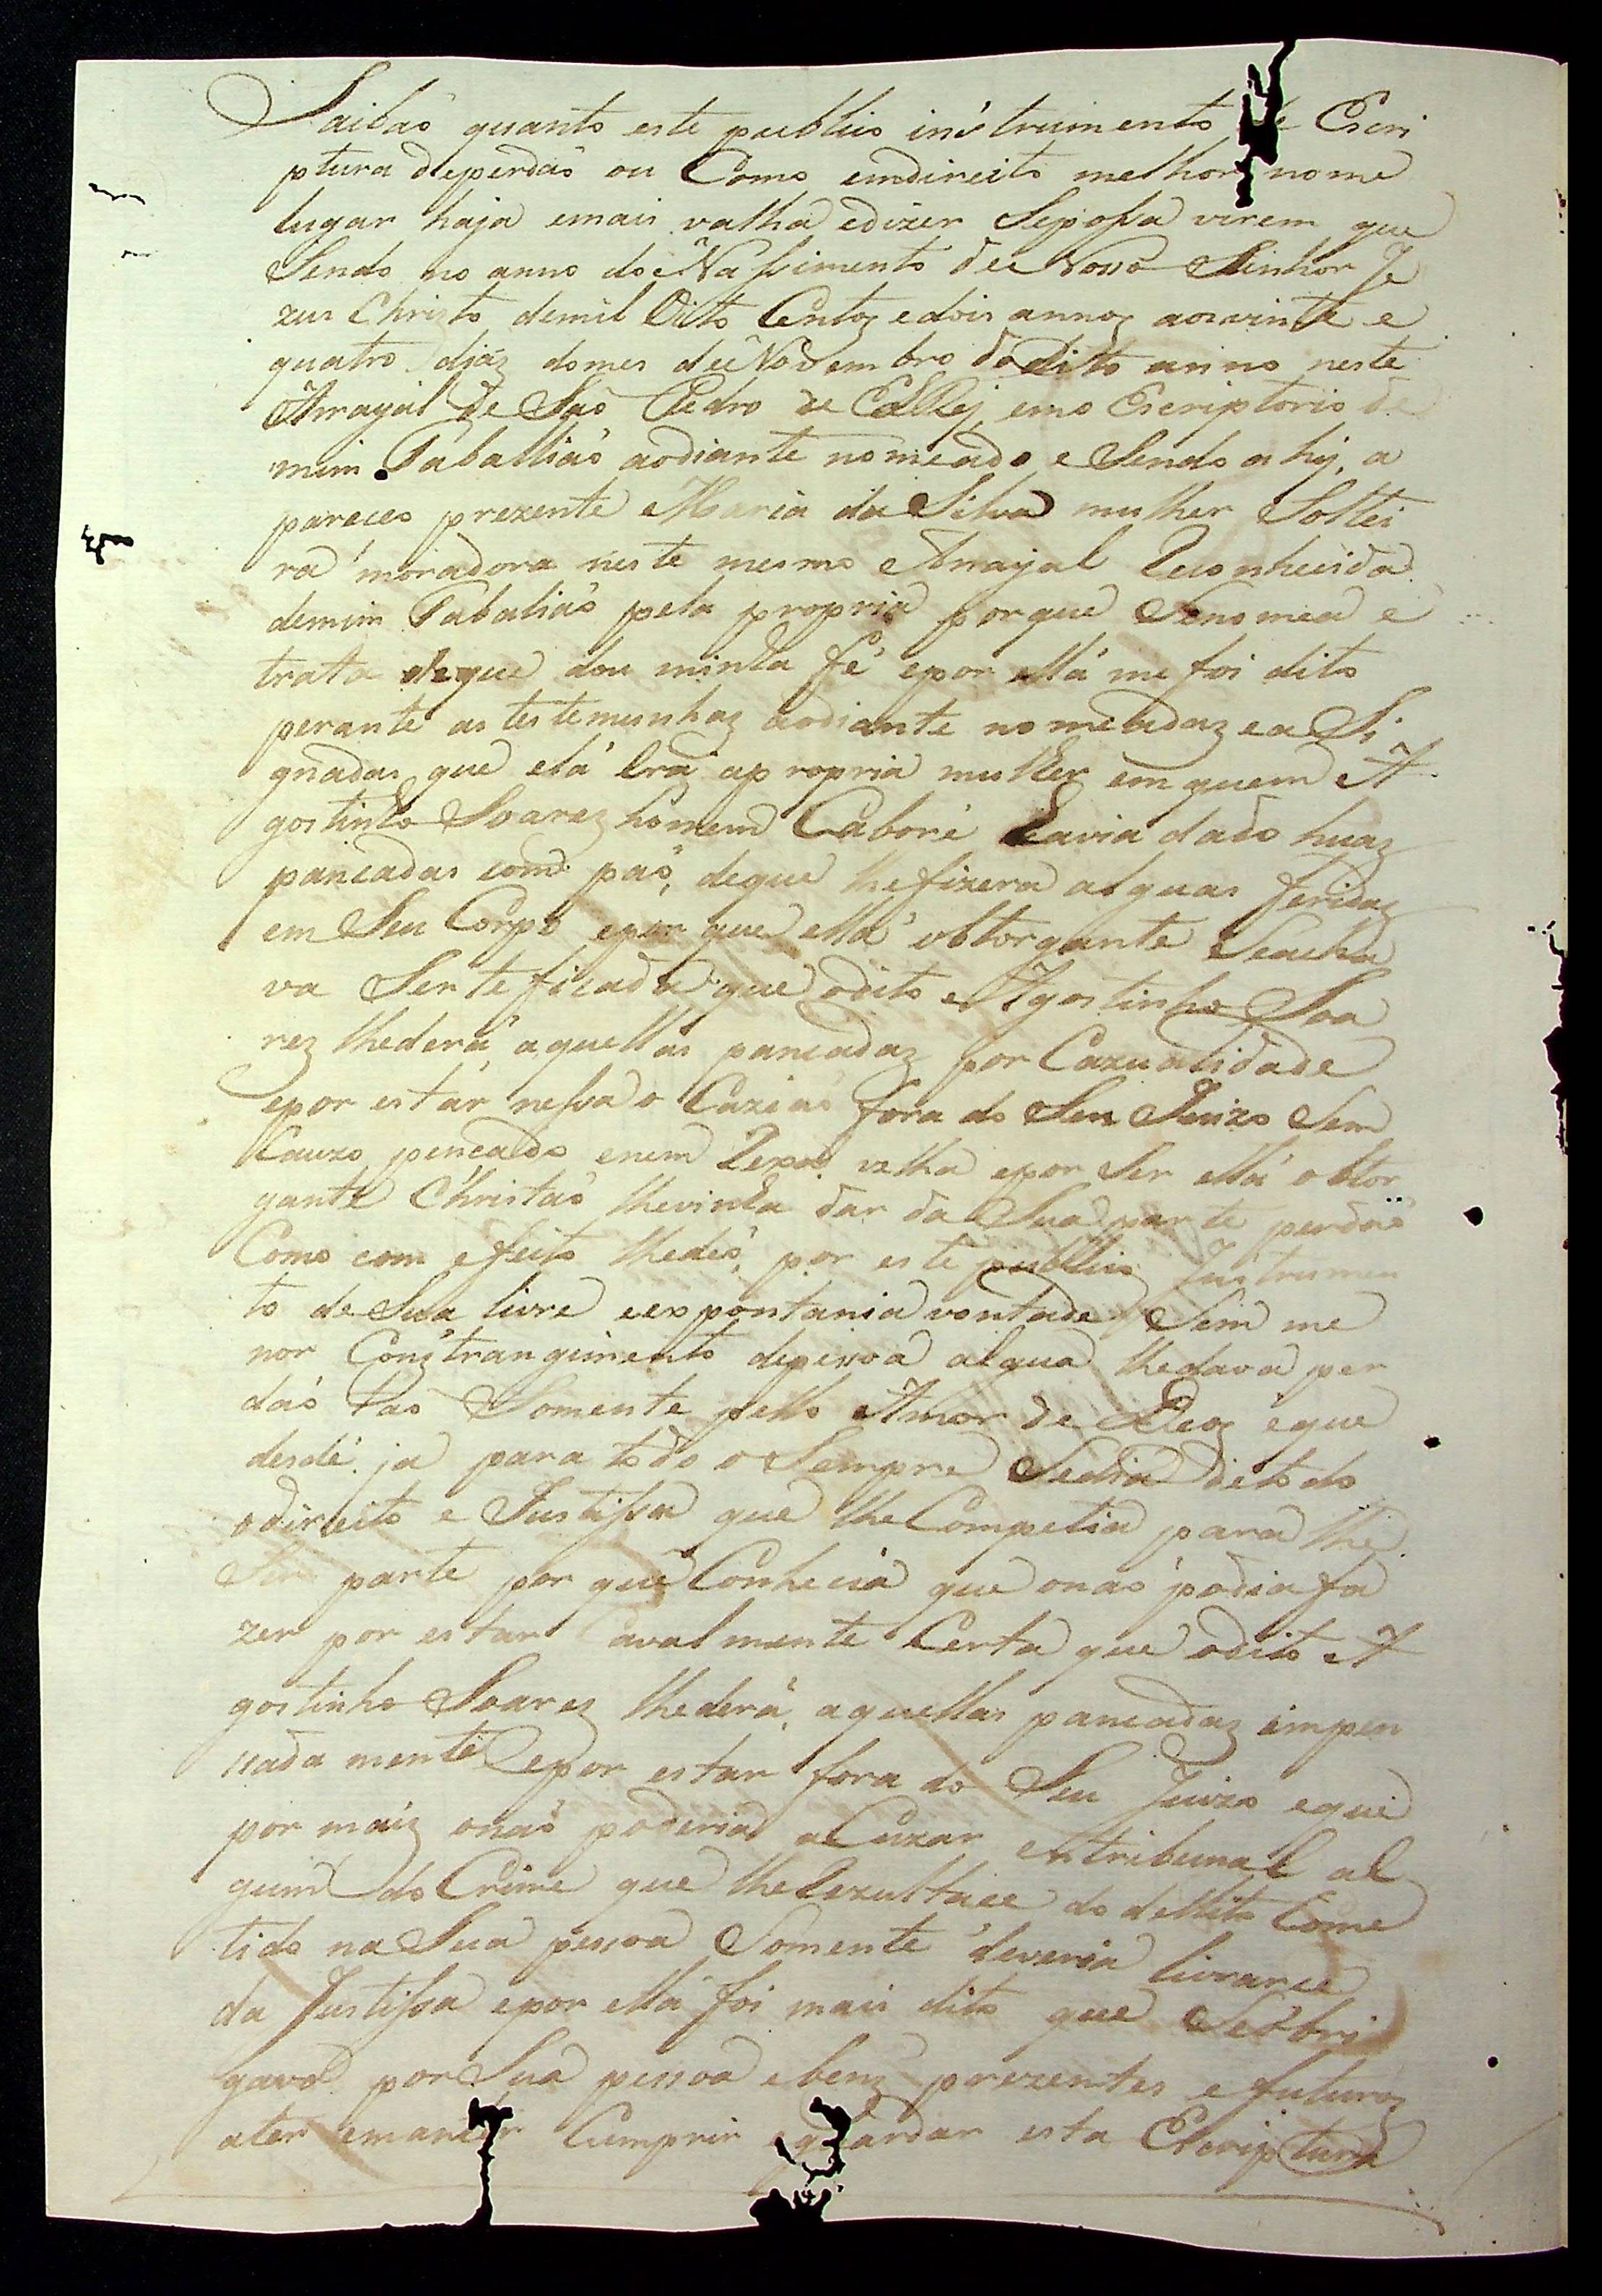 Saibaó quanto este publico instrumento de Escri
ptura deperdaó ou Como emdireito melhor nome
lugar haja emais valha edizer Sepossa virem que
Sendo no anno do Nassimento de Nosso Senhor Je
zus Christo demil Oito Centoz edois annoz aosvinte e
quatro diaz domes de Novembro do dito anno neste
Arrayal de Saó Pedro de El Rej emo Escriptorio de
mim Taballiaó aodiante nomeado e Sendo ahy, a
pareceo prezente Maria da Silva mulher Soltei
ra moradora neste mesmo Arrayal Reconhecida
demim Tabaliaó pela propria porque Senomea e
trata deque dou minha fé epor ella me foi dito
perante as testemunhaz aodiante nomeadaz ea Si
gnadas que ela hera apropria mulher em quem A
gostinho Soarez homem Caboré havia dado huaz
pancadas com paó, deque lhefizera alguas feridaz
em Seu Corpo epor que ella obtorgante Seacha
va Serteficada que odito Agostinho Soa
rez lhedera aquellas pancadaz por Cazualidade
epor estar nessa o Caziaó fora do Seu Juizo Sem
Cauzo pencado enem Rexa velha epor Ser ella obtor
gante Christaó lhevinha dar da Sua parte perdaó
Como com efeito lhedeó, por este publico Instrumen
to de Sua livre eexpontania vontade Sem me
nor Constrangimento depessoa algua lhedava per
daó tao Somente pello Amor de Deoz eque
desde ja para todo o Sempre Sedia dicto do
odireito e Justissa que lheCompetia para lhe
Ser parte por que Conhecia que onaó podia fa
zer por estar Cavalmente Certa que odito A
gostinho Soarez lhedera, aquellas pancadaz impen
sada mente epor estar fora do Seu Juizo eque
por maiz onaó poderia aCuzar entribunal al
gum do Crime que lheRezultace do dellito Come
tido na Sua pessoa Somente deveria livrarce
da Justissa epor ella foi mais dito que Seobri
gava por Sua pessoa ebenz prezentes efuturoz
ater emanter Cumprir eguardar esta Escriptura